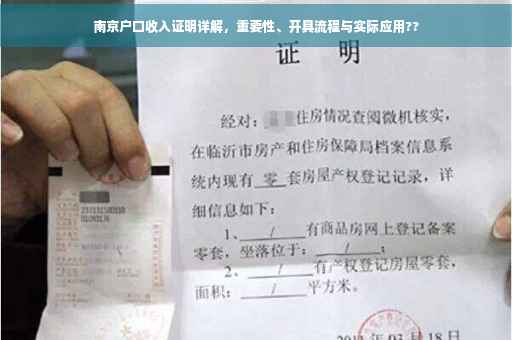 南京户口收入证明详解，重要性、开具流程与实际应用??
证 明
经对：住房情况查阅微机核实，
在临沂市房产和住房保障局档案信息系
统内现有 零 套房屋产权登记记录，详
细信息如下：
1、 / 有商品房网上登记备案
零套，坐落位于： / ；
2、 / 有产权登记房屋零套，
面积： / 平方米。
03月18日